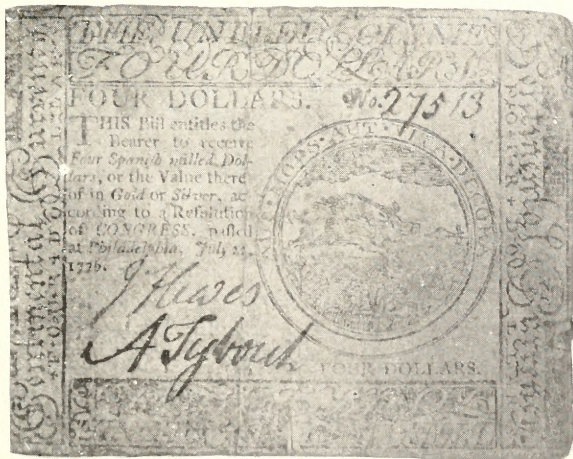 THE UNITED COLONIES
FOUR DOLLARS.
FOUR DOLLARS. No. 27513
THIS Bill entitles the
Bearer to receive
Four Spanish milled Dol-
lars, or the Value there-
of in Gold or Silver, ac-
cording to a Resolution
of CONGRESS, passed
at Philadelphia, July 22,
1776.
AUT MORS AUT VITA DECORA
J Hewes
A Tybout
FOUR DOLLARS.
Continental Currency
FOUR DOLLARS
Continental Currency